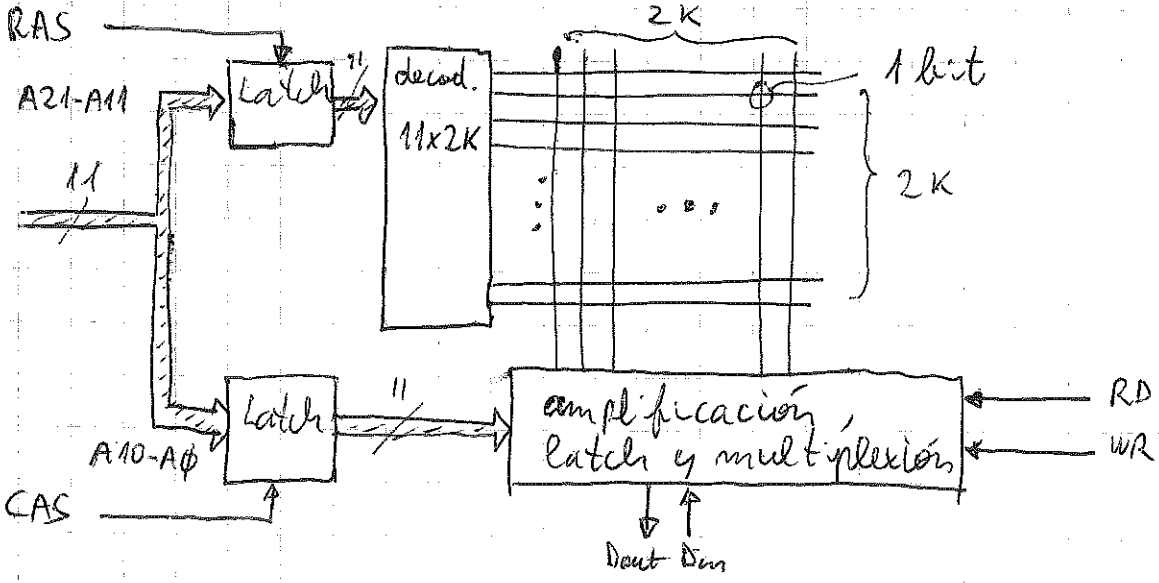 RAS
2K
Latch
11
decod.
11x2K
1 bit
A21-A11
11
2K
Latch
11
A10-Aϕ
CAS
amplificación,
latch y multiplexión
RD
WR
Dout Din